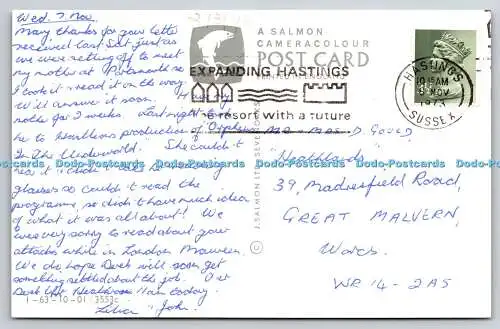 Wed. 7 Nov.
Many thanks for your letter
received last Sat. just as
we were setting off to meet
my mother at
I took it & read it on the way.
We'll answer it soon.
mother for 2 weeks. Last night
to production of Orpheus
In the Underworld. She couldn't
glasses so couldn't read the
programme, so didn't have much idea
of what it was all about! We
were very sorry to read about your
attacks while in London Maureen.
We do hope Derek will soon get
something settled about the job.
Derek
John.
1-63-10-01 / 3553c
A SALMON
CAMERACOLOUR
POST CARD
EXPANDING HASTINGS
The resort with a future
HASTINGS
10:15AM
NOV
1973
SUSSEX
J. SALMON LTD SEVENOAKS
©
Mr & Mrs D. Gould
39, Madresfield Road,
GREAT MALVERN,
Worcs.
WR 14 - 2AS
Dodo-Postcards Dodo-Postcards Dodo-Postcards Dodo-Postcards Dodo-Postcards